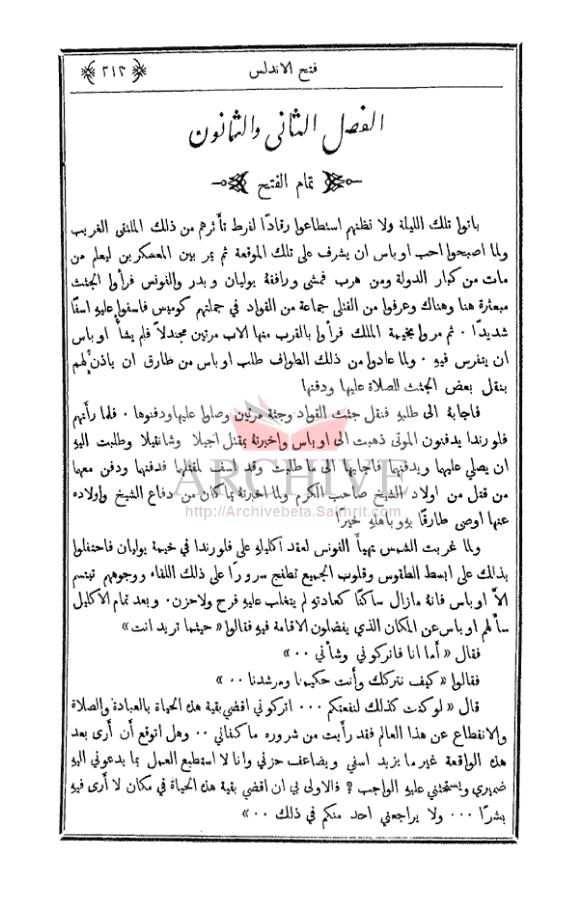 فتح الاندلس
﴿٣١٣﴾
الفصل الثاني والثمانون
تمام الفتح
باتوا تلك الليلة ولا نظنهم استطاعوا رقادًا لفرط تأثرهم من ذلك الملتقى الغريب
ولما اصبحوا احب اوباس ان يشرف على تلك الموقعة ثم يمر بين المعسكرين ليعلم من
مات من كبار الدولة ومن هرب فمشى ورافقهُ يوليان وبدر والفونس فرأوا الجثث
مبعثرة هنا وهناك وعرفوا من القتلى جماعة من القواد في جملتهم كوميس فاسفوا عليهِ اسفًا
شديدًا ٠ ثم مروا بخيمة الملك فرأوا بالقرب منها الاب مرتين مجندلاً فلم يشأ اوباس
ان يتفرس فيهِ ٠ ولما عادوا من ذلك الطواف طلب اوباس من طارق ان يأذن لهم
بنقل بعض الجثث للصلاة عليها ودفنها
فاجابهُ الى طلبهِ فنقل جثث القواد وجثة مرتين وصلوا عليها ودفنوها ٠ فلما رأتهم
فلورندا يدفنون الموتى ذهبت الى اوباس واخبرتهُ بمقتل اجيلا وشانتيلا وطلبت اليهِ
ان يصلي عليهما ويدفنهما فاجابها الى ما طلبت وقد اسف لمقتلهما فدفنهما ودفن معهما
من قتل من اولاد الشيخ صاحب الكرم ولما اخبرتهُ بما كان من دفاع الشيخ واولاده
عنها اوصى طارقًا بهِ وباهلهِ خيرًا
ولما غربت الشمس تهيأ الفونس لعقد اكليلهِ على فلورندا في خيمة يوليان فاحتفلوا
بذلك على ابسط الطقوس وقلوب الجميع تطفح سرورًا على ذلك اللقاء ووجوههم تبتسم
الاَّ اوباس فانهُ ما زال ساكتًا كعادتهِ لم يتغلب عليهِ فرح ولا حزن ٠ وبعد تمام الاكليل
سألهم اوباس عن المكان الذي يفضلون الاقامة فيهِ فقالوا « حيثما تريد انت »
فقال « أما انا فاتركوني وشأني ٠٠ »
فقالوا « كيف نتركك وأنت حكيمنا ومرشدنا ٠٠ »
قال « لو كنت كذلك لنفعتكم ٠٠٠ اتركوني اقضي بقية هذه الحياة بالعبادة والصلاة
والانقطاع عن هذا العالم فقد رأيت من شروره ما كفاني ٠٠ وهل اتوقع أن أرى بعد
هذه الواقعة غير ما يزيد اسفي ويضاعف حزني وانا لا استطيع العمل بما يدعوني اليهِ
ضميري ويستحثني عليهِ الواجب ؟ فالاولى بي ان اقضي بقية هذه الحياة في مكان لا أرى فيهِ
بشرًا ٠٠٠ ولا يراجعني احد منكم في ذلك ٠٠ »
ARCHIVE
http://Archivebeta.Sakhrit.com